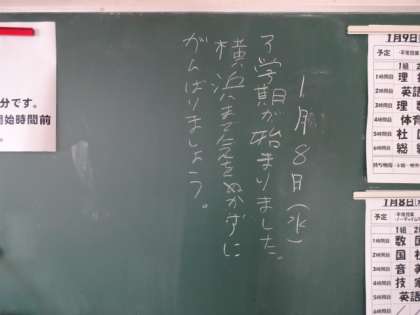 1月8日(水)
3学期が始まりました。
横浜まで気をぬかずに
がんばりましょう。
分です。
開始時間前
1月9日
予定 ・平常授業
1組 2
1時間目 理
2時間目 英語
3時間目 理
4時間目 体育
5時間目 社
6時間目 総
1月8日
予定 ・平常授業
1組 2
1時間目 数 国
2時間目 国 社
3時間目 音 英
4時間目 技 家
5時間目 英語
6時間目